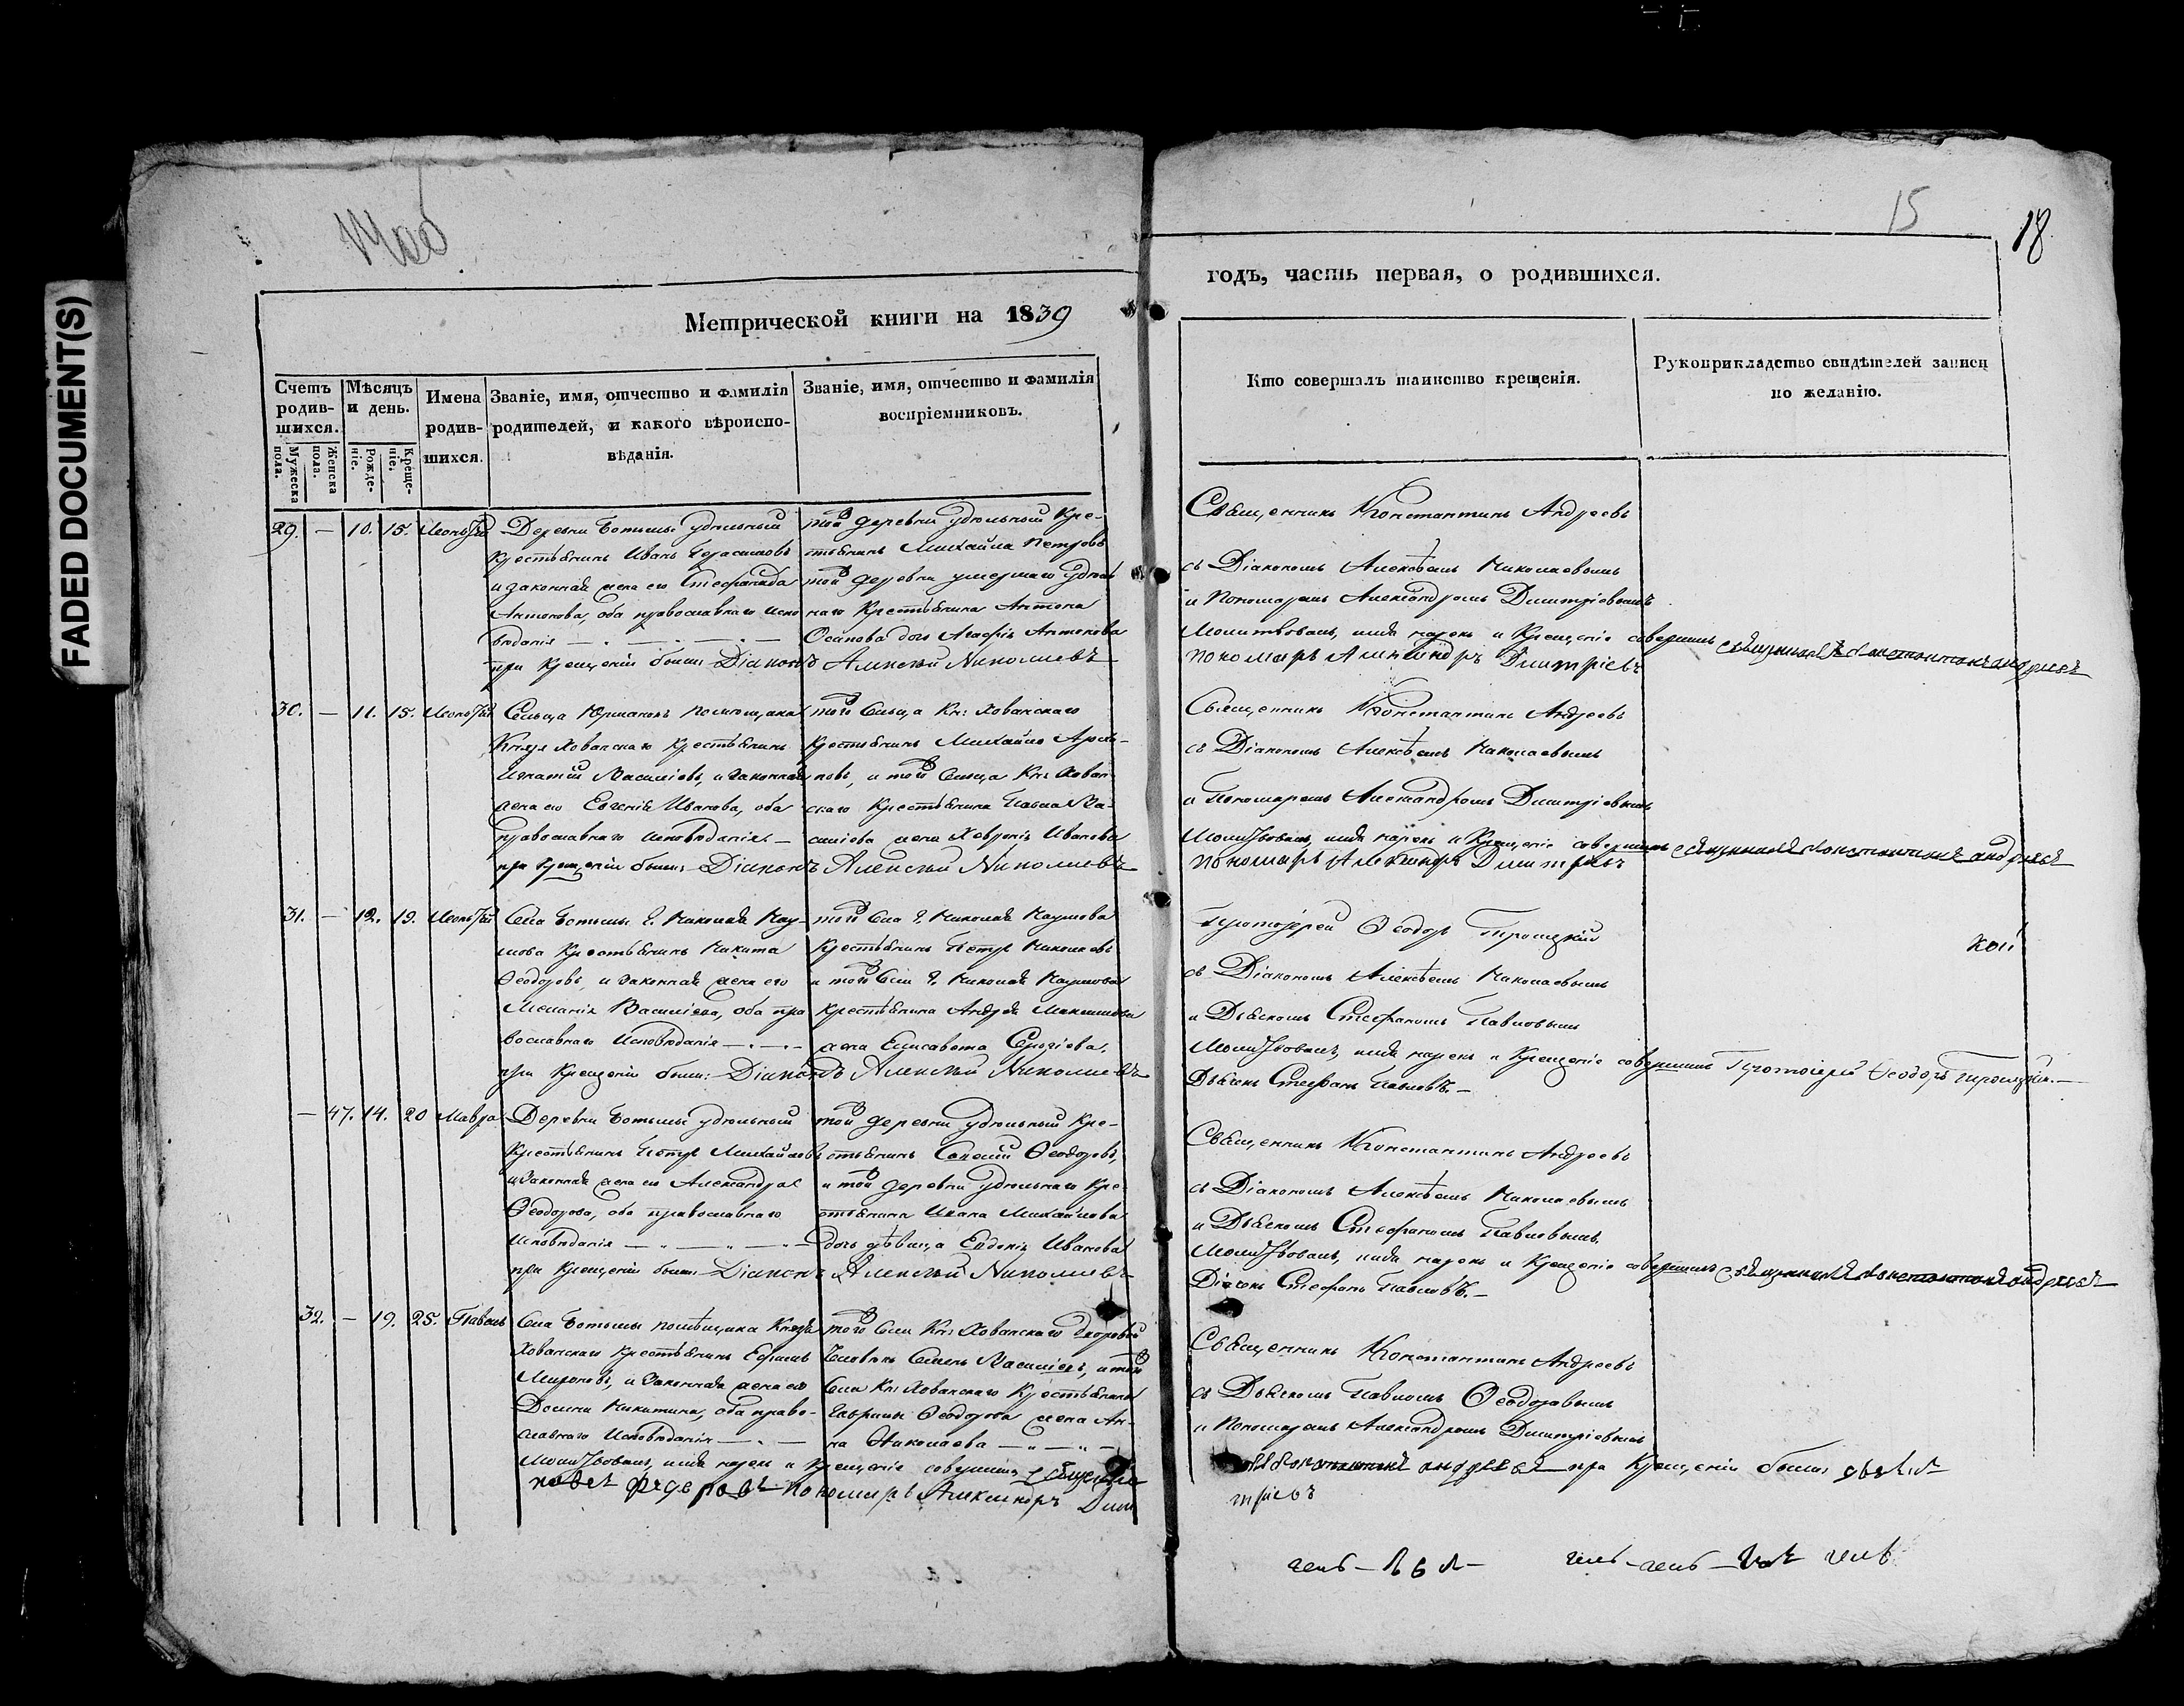 FADED DOCUMENT(S)
15
18
Метрической книги на 1839
годъ, часть первая, о родившихся.
Счетъ родив-шихся.
Мужеска пола.
Женска пола.
Мѣсяцъ и день.
Рожде-ніе.
Креще-ніе.
Имена родив-шихся.
Званіе, имя, отчество и фамилія
родителей, и какого вѣроиспо-
вѣданія.
Званіе, имя, отчество и фамилія
воспріемниковъ.
Кто совершалъ таинство крещенія.
Рукоприкладство свидѣтелей записи
по желанію.
29. — 10. 15. Леонтій
Деревни Ботьмы удѣльный
крестьянинъ Иванъ Герасимовъ
и законная жена его Стефанида
Антонова, оба православнаго испо
вѣданія
при крещеніи были: Діаконъ Алексѣй Николаевъ
той деревни удѣльный кре-
стьянинъ Михайла Петровъ
той деревни умершаго удѣль
наго крестьянина Антона
Осипова дочь Агафія Антонова
Священникъ Константинъ Андреевъ
съ Діакономъ Алексѣемъ Николаевымъ
и Пономаремъ Александромъ Димитріевымъ
Молитвовалъ, имя нарекъ и Крещеніе совершилъ священникъ Константинъ Андреевъ
пономарь Александръ Дмитріевъ
30. — 11. 15. Леонтій
Сельца помѣщика
Князя Хованскаго крестьянинъ
Игнатій Васильевъ, и законная
жена его Евгенія Иванова, оба
православнаго исповѣданія —
при крещеніи были: Діаконъ Алексѣй Николаевъ
того сельца Кн: Хованскаго
крестьянинъ Михайло
и того сельца Кн: Хован-
скаго крестьянина Павла Ва-
сильева жена Хевронія Иванова
Священникъ Константинъ Андреевъ
съ Діакономъ Алексѣемъ Николаевымъ
и Пономаремъ Александромъ Димитріевымъ
Молитвовалъ, имя нарекъ и Крещеніе совершилъ священникъ Константинъ Андреевъ
пономарь Александръ Димитріевъ
31. — 12. 19. Леонтій
Села Ботьмы Г. Николая Нау-
мова крестьянинъ Никита
Ѳеодоровъ, и законная жена его
Меланія Васильева, оба пра
вославнаго исповѣданія
при крещеніи были: Діаконъ Алексѣй Николаевъ
того села Г. Николая Наумова
крестьянинъ Петръ Николаевъ
и того села Г. Николая Наумова
крестьянина Андрея Максимова
жена Елисавета Сергіева.
Протоіерей Ѳеодоръ Троицкій
съ Діакономъ Алексѣемъ Николаевымъ
и Дьячкомъ Стефаномъ Павловымъ
Молитвовалъ, имя нарекъ и Крещеніе совершилъ Протоіерей Ѳеодоръ Троицкій. —
Дьячекъ Стефанъ Павловъ. —
— 47. 14. 20 Мавра
Деревни Ботьмы удѣльный
крестьянинъ Петръ Михайловъ
и законная жена его Александра
Ѳеодорова, оба православнаго
исповѣданія
при крещеніи были: Діаконъ Алексѣй Николаевъ
той деревни удѣльный кре-
стьянинъ Ѳеодоровъ,
и той деревни удѣльнаго кре-
стьянина Ивана Михайлова
дочь дѣвица Евдокія Иванова
Священникъ Константинъ Андреевъ
съ Діакономъ Алексѣемъ Николаевымъ
и Дьячкомъ Стефаномъ Павловымъ.
Молитвовалъ, имя нарекъ и Крещеніе совершилъ священникъ Константинъ Андреевъ
Дьячекъ Стефанъ Павловъ. —
32. — 19. 25. Павелъ
Села Ботьмы помѣщика Князя
Хованскаго крестьянинъ Ефимъ
Мироновъ, и законная жена его
Домна Никитина, оба право-
славнаго исповѣданія
того села Кн: Хованскаго дворовый
человѣкъ Семенъ Васильевъ, и того
села Кн: Хованскаго крестьянина
Гаврилы Ѳеодорова жена Ан-
на Николаева
Священникъ Константинъ Андреевъ
съ Дьячкомъ Павломъ Ѳеодоровымъ
и Пономаремъ Александромъ Димитріевымъ
Молитвовалъ, имя нарекъ и крещеніе совершилъ Андреевъ при Крещеніи были: дьячекъ
павелъ федоровъ пономарь Александръ Дими
тріевъ